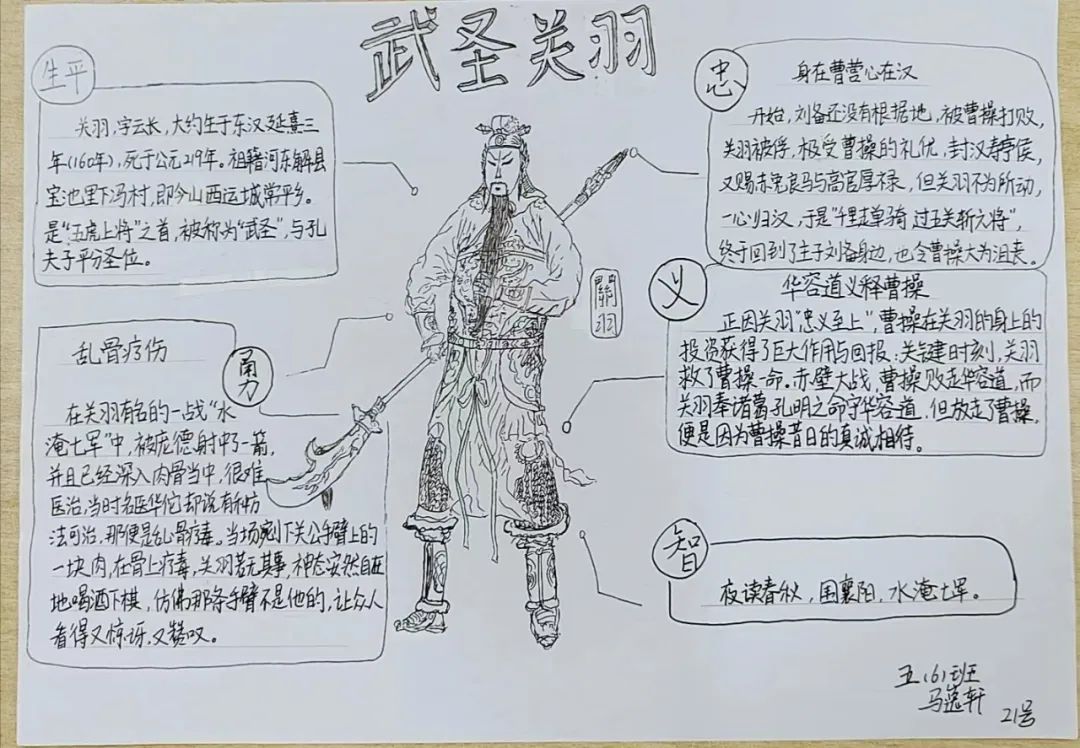 武圣关羽
生平
关羽，字云长，大约生于东汉延熹三
年(160年)，死于公元219年。祖籍河东解县
宝池里下冯村，即今山西运城常平乡。
是“五虎上将”之首，被称为“武圣”，与孔
夫子平分圣位。
勇
乱骨疗伤
在关羽有名的一战“水
淹七军”中，被庞德射中了一箭，
并且已经深入肉骨当中，很难
医治，当时名医华佗却说有种方
法可治，那便是乱骨疗毒。当场剜下关公手臂上的
一块肉，在骨上疗毒，关羽若无其事，神态安然自在
地喝酒下棋，仿佛那条手臂不是他的，让众人
看得又惊讶，又赞叹。
關羽
忠
身在曹营心在汉
开始，刘备还没有根据地，被曹操打败，
关羽被俘，极受曹操的礼优，封汉寿亭侯，
又赐赤兔良马与高官厚禄，但关羽不为所动，
一心归汉，于是“千里走单骑，过五关斩六将”，
终于回到了主子刘备身边，也令曹操大为沮丧。
义
华容道义释曹操
正因关羽“忠义至上”，曹操在关羽的身上的
投资获得了巨大作用与回报：关键时刻，关羽
救了曹操一命。赤壁大战，曹操败走华容道，而
关羽奉诸葛孔明之命守华容道，但放走了曹操，
便是因为曹操昔日的真诚相待。
智
夜读春秋，围襄阳，水淹七军。
五(6)班
马逸轩
21号